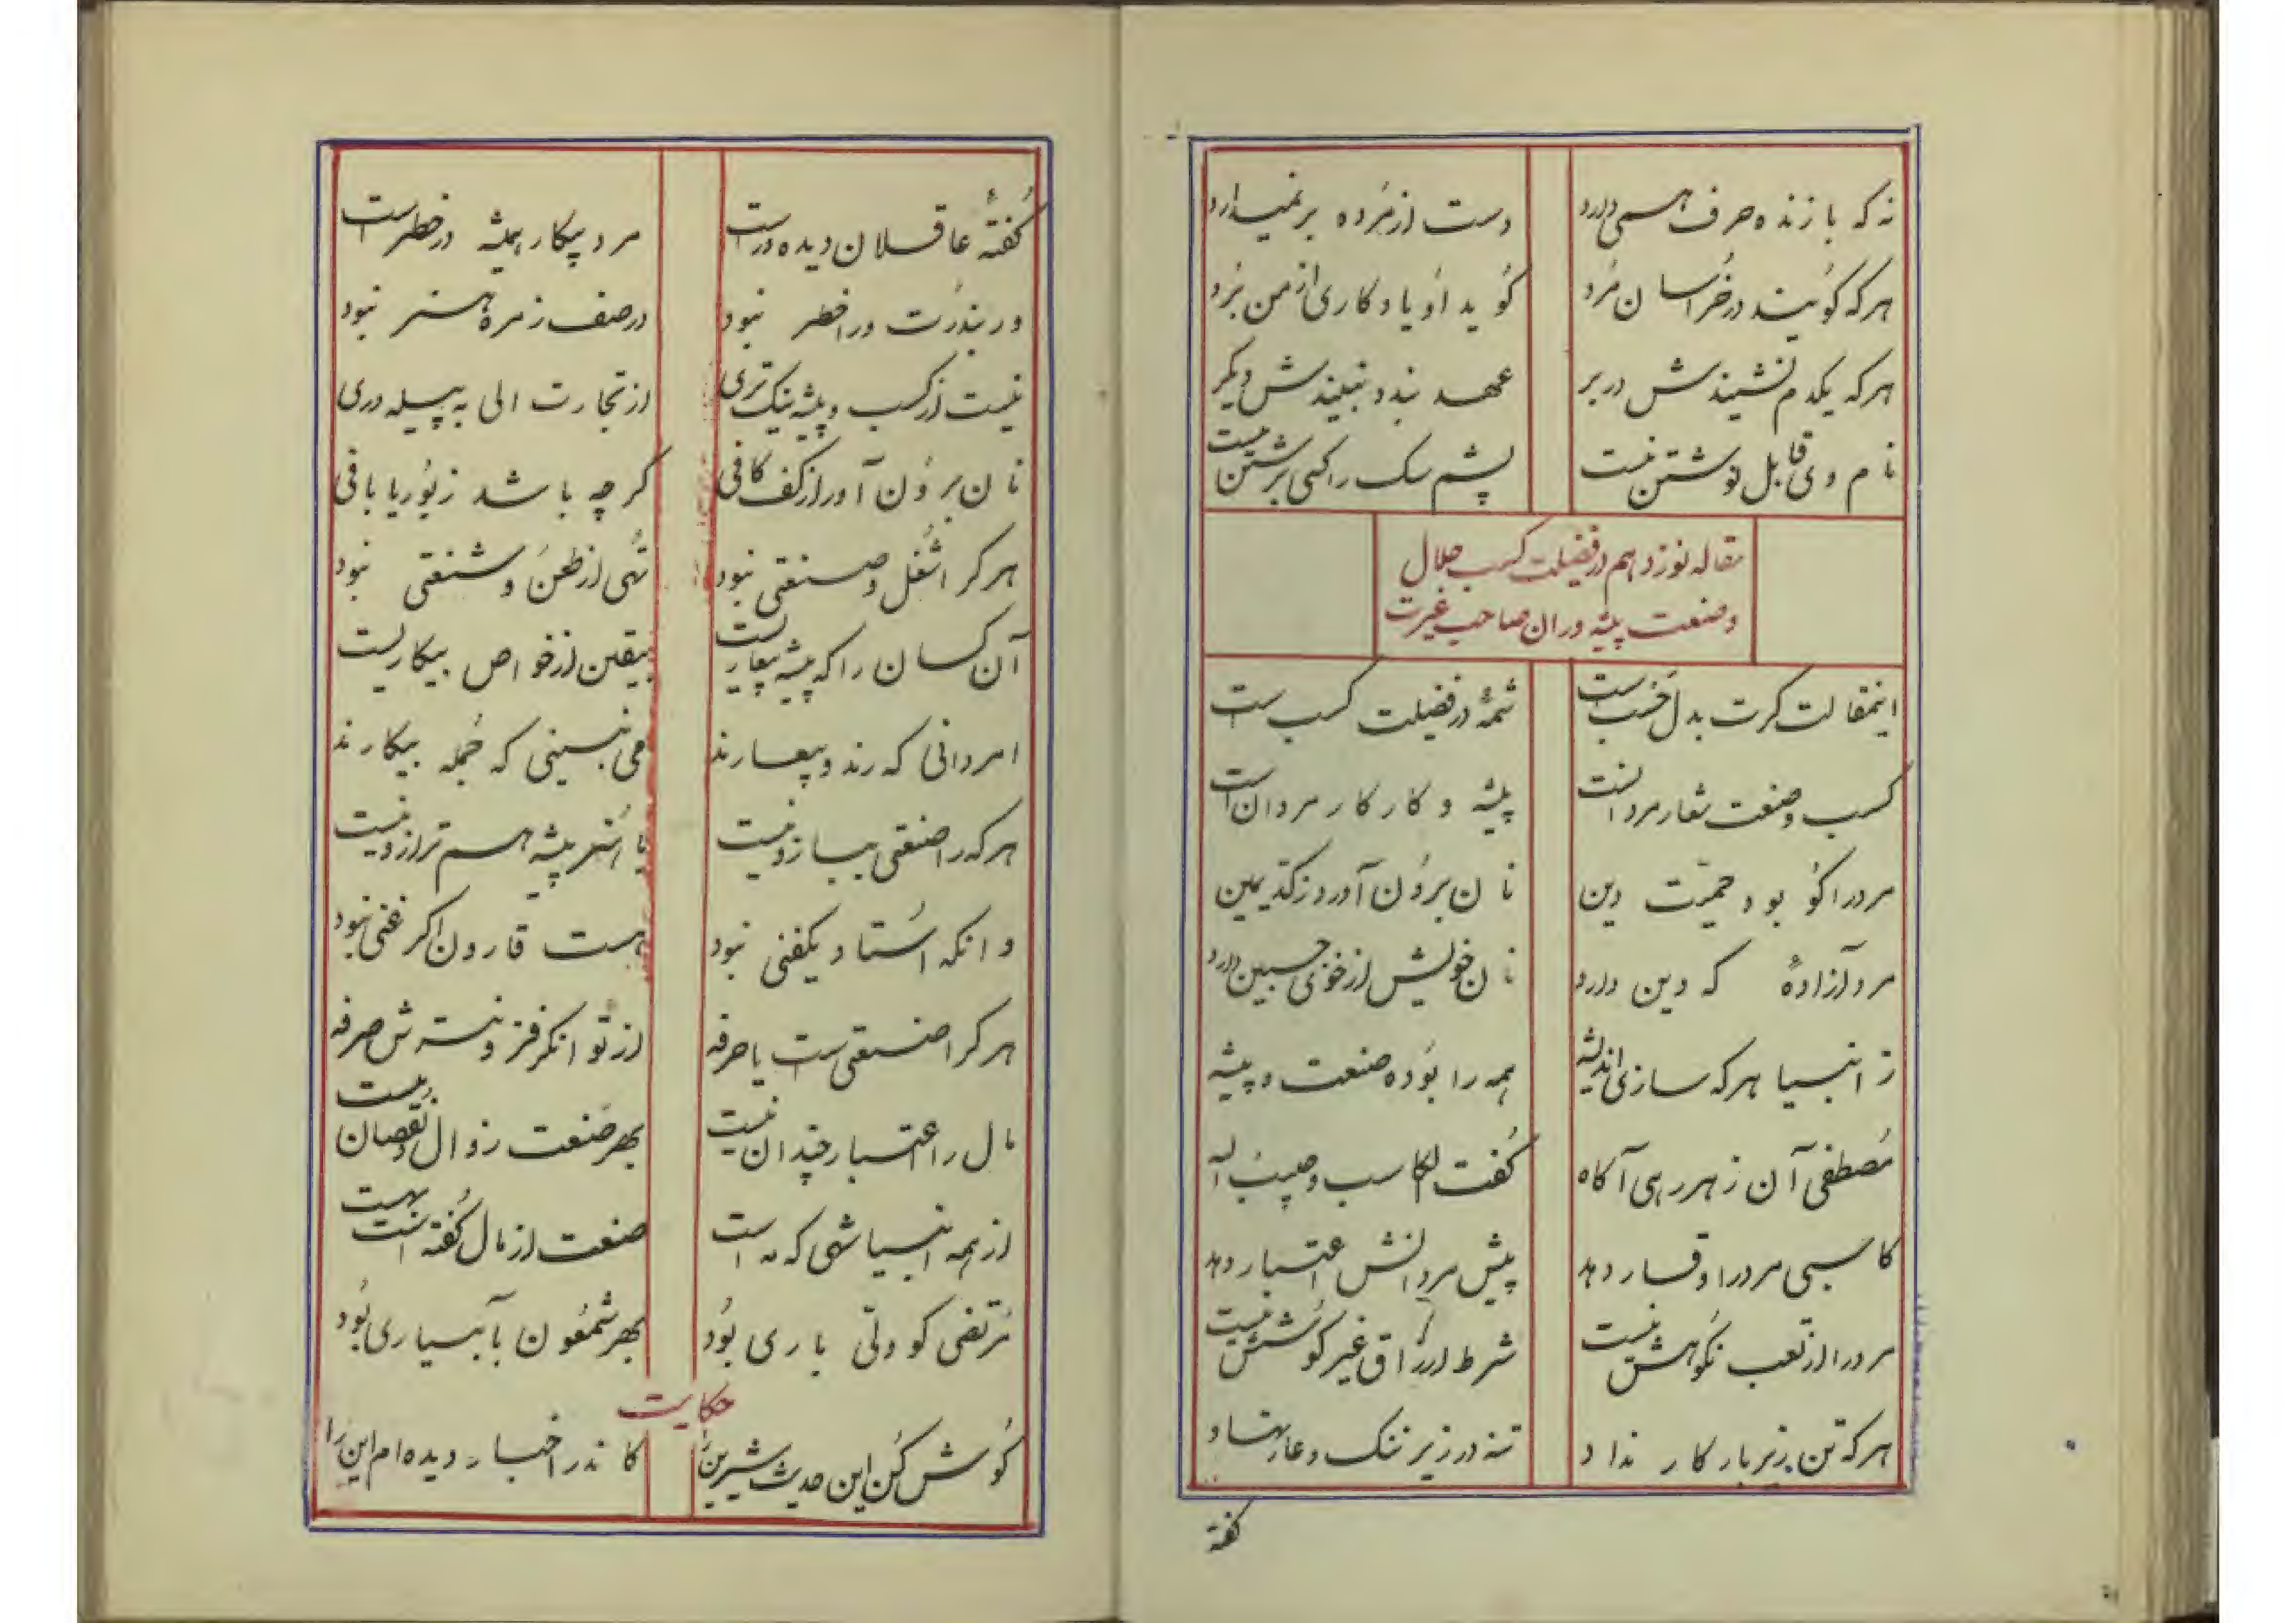 نه که با زنده حرف هسمی دارد دست از مُرده بر نمیدارد
هرکه کویند در خُراسان مُرد کُوید اُو یادکاری از من بُرد
هرکه یکدم نشیندش در بر عهد بندد نبیندش دیکر
نام وی قابل نوشتن نیست پشم سک را کسی برشتن نیست
مقاله نوزدهم در فضیلت کسب حلال
وصنعت پیشه وران صاحب غیرت
اینمقالت کرت بدل خسب است شمهٔ در فضیلت کسب است
کسب وصنعت شعار مردانست پیشه و کار کار مردان است
مرد را کو بود حمیّت دین نان برُون آورد ز کدّ یمین
مرد آزادهٔ که دین دارد نان خویش از خوی جبین دارد
ز انبیا هرکه سازی اندیشه همه را بُوده صنعت و پیشه
مُصطفی آن ز هر رهی آکاه کُفت الکاسب حبیب اله
کاسبی مرد را وقار دهد پیش مردانش اعتبار دهد
مرد را از تعب نکُوهش نیست شرط ارزاق غیر کُوشش نیست
هرکه تن زیر بار کار نداد تنه در زیر ننک و عار نهاد
کفته
کُفتهٔ عاقلان دیده ور است مرد بیکار همیشه در خطر است
ور بندرت ورا خطر نبود در صف زمرهٔ هنر نبود
نیست از کسب و پیشه نیک تری از تجارت الی به پیله وری
نان برُون آور از کف کافی کرچه باشد ز بُوریا بافی
هرکرا شُغل و صنعتی نبود تُهی از طعن و شنعتی نبود
آن کسان را که پیشه بیعاریست بیقین از خواص بیکاریست
امردانی که رند و بیعارند می نبینی که جُمله بیکارند
هرکه را صنعتی ببازو نیست با هُنر پیشه هم ترازو نیست
وانکه اُستاد یکفنی نبود هست قارون اکر غنی نبود
هرکرا صنعتی ست یا حرفه از توانکر فزونستش صرفه
مال را اعتبار چندان نیست بهر صنعت زوال و نقصان نیست
از همه انبیا شهی که مه است صنعت از مال کُفته است بهست
مُرتضی کو ولّی باری بُود بهر شمعُون بآبیاری بُود
حکایت
کُوش کُن این حدیث شیرین را کاندر اخبار دیده ام این را